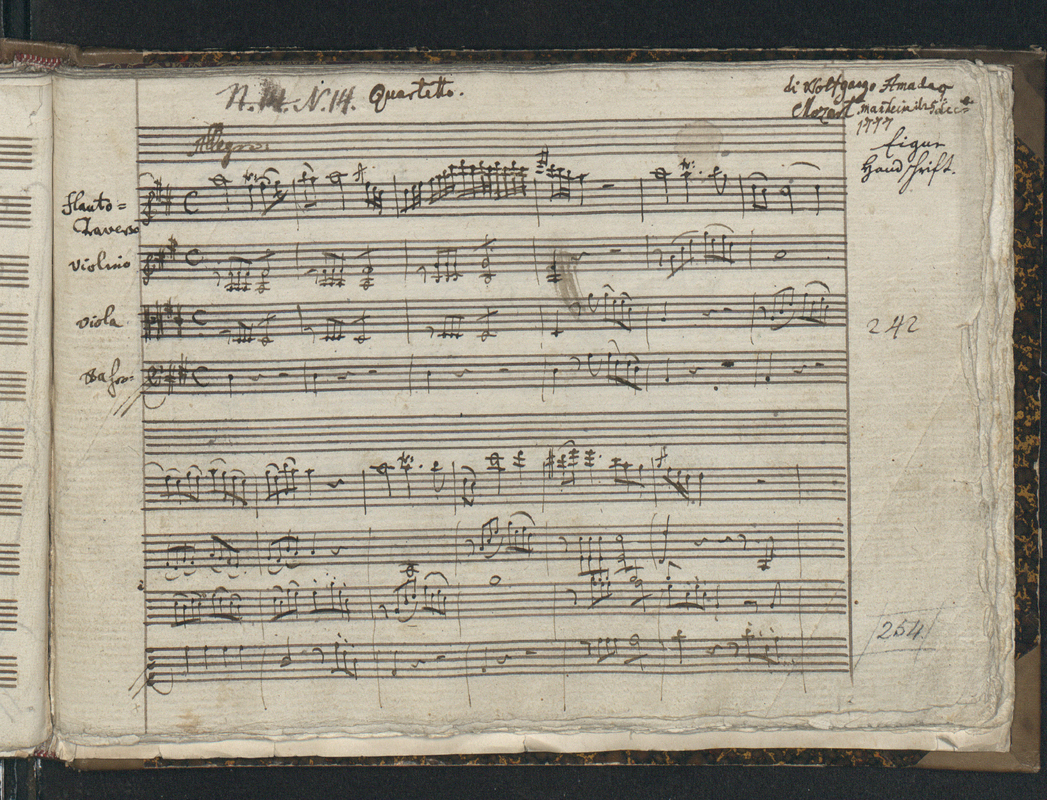 N. 14. N. 14. Quartetto.
di Wolfgango Amadeo
Mozart
1777
Allegro.
Eigene
Handschrift.
flauto=
Traverso
violino
viola
242
254